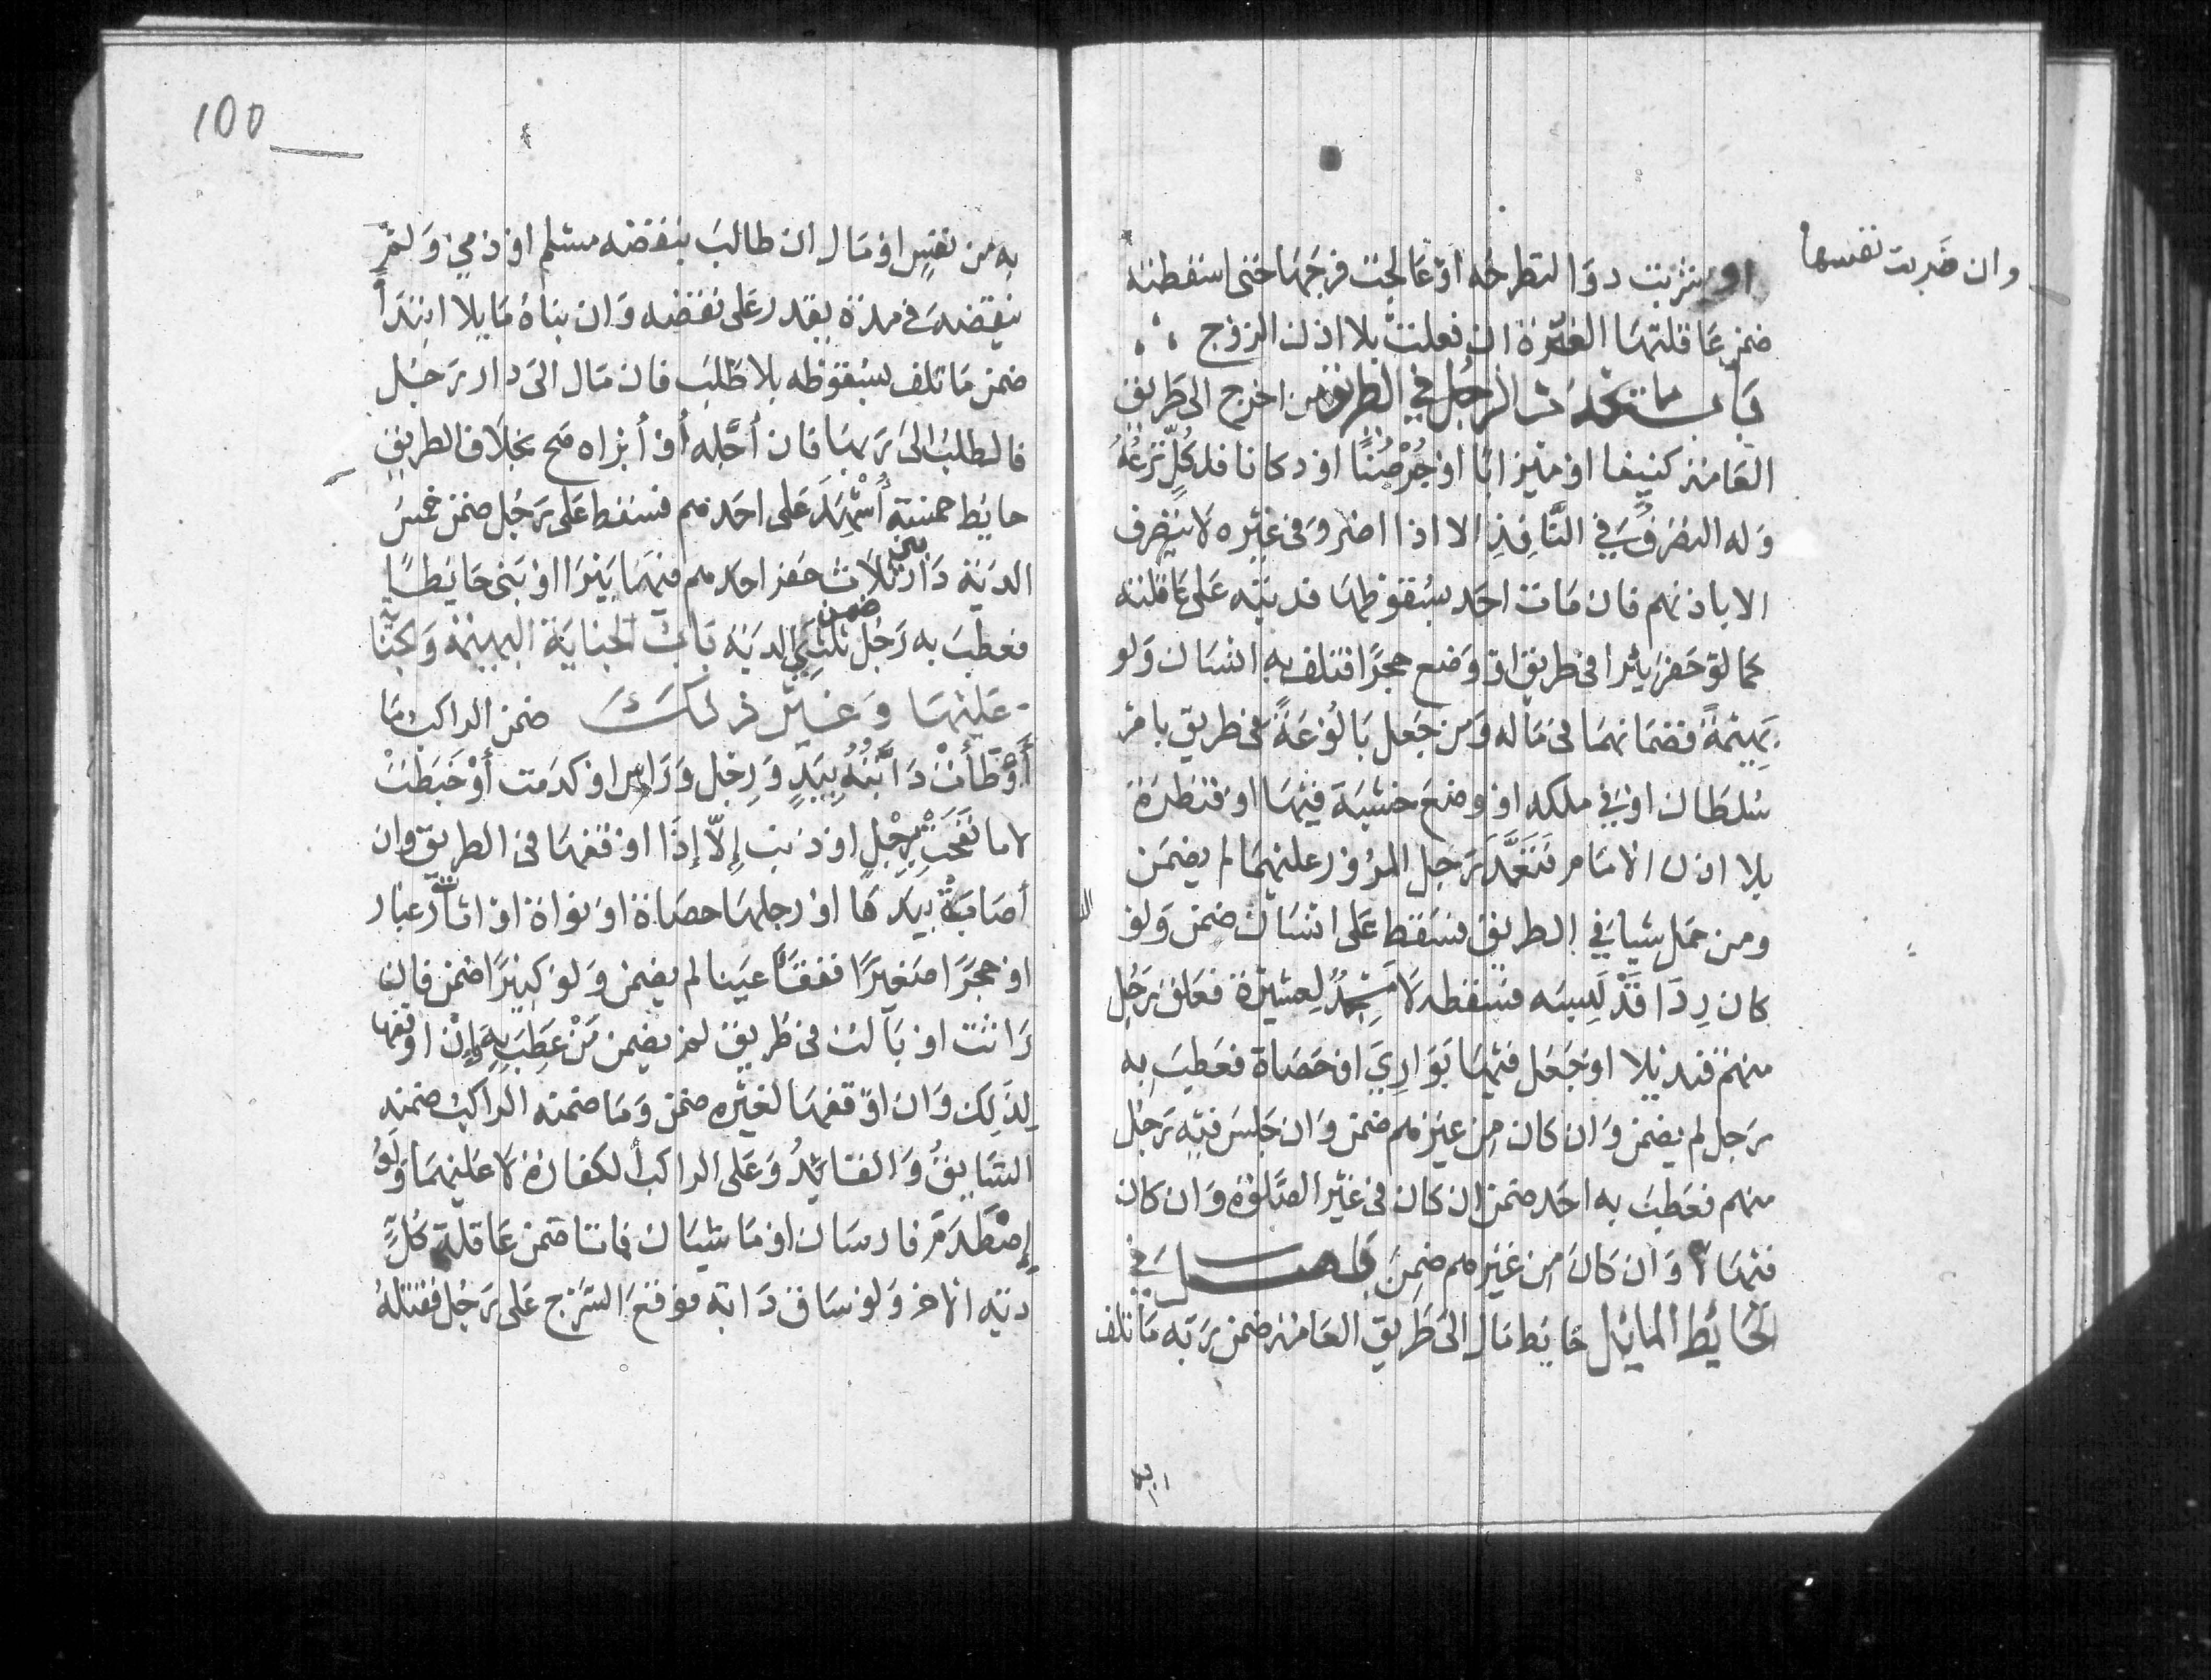 وان ضربت نفسها
او شربت دوا لتطرحه او عالجت فرجها حتى اسقطته
ضمن عاقلتها الغرة ان فعلت بلا اذن الزوج
باب ما يحدث الرجل في الطريق من اخرج الى طريق
العامة كنيفا او ميزابا او جرصنا او دكانا فلكل نزعه
وله التصرف في النافذ الا اذا اضر وفي غيره لا يتصرف
الا باذنهم فان مات احد بسقوطها فديته على عاقلته
كما لو حفر بئرا في طريق او وضع حجرا فتلف به انسان ولو
بهيمة فضمانهما في ماله ومن جعل بالوعة في طريق بامر
سلطان او في ملكه او وضع خشبة فيها او قنطرة
بلا اذن الامام فتعمد رجل المرور عليهما لم يضمن
ومن حمل شيا في الطريق فسقط على انسان ضمن ولو
كان ردا قد لبسه فسقط لا مسجد لعشيرة فعلق رجل
منهم قنديلا او جعل فيها بواري او حصاة فعطب به
رجل لم يضمن وان كان من غيرهم ضمن وان جلس فيه رجل
منهم فعطب به احد ضمن ان كان في غير الصلوة وان كان
فيها لا وان كان من غيرهم ضمن فصل في
الحايط المايل حايط مال الى طريق العامة ضمن ربه ما تلف
100
به من نفس او مال ان طالب بنقضه مسلم او ذمي ولم
ينقضه في مدة يقدر على نقضه وان بناه مايلا ابتدأ
ضمن ما تلف بسقوطه بلا طلب فان مال الى دار رجل
فالطلب الى ربها فان أجله أو أبراه صح بخلاف الطريق
حايط خمسة أشهد على احدهم فسقط على رجل ضمن خمس
الدية دار بين ثلاث حفر احدهم فيها بيرا او بنى حايطا
فعطب به رجل ضمن ثلثي الدية باب الجناية البهيمة والجنا
عليها وغير ذلك ضمن الراكب ما
أوطأت دابته بيد ورجل ورأس او كدمت أو خبطت
لا ما نفحت برجل او ذنب إلا إذا اوقفها في الطريق وان
أصابت بيدها او رجلها حصاة او نواة او اثارت غبار
او حجرا صغيرا ففقأ عينا لم يضمن ولو كبيرا ضمن فان
راثت او بالت في طريق لم يضمن من عطب به وإن اوقفها
لذلك وان اوقفها لغيره ضمن وما ضمنه الراكب ضمنه
السايق والقايد وعلى الراكب الكفارة لا عليهما ولو
إصطدم فارسان او ماشيان فماتا ضمن عاقلة كل
دية الاخر ولو ساق دابة فوقع السرج على رجل فقتله